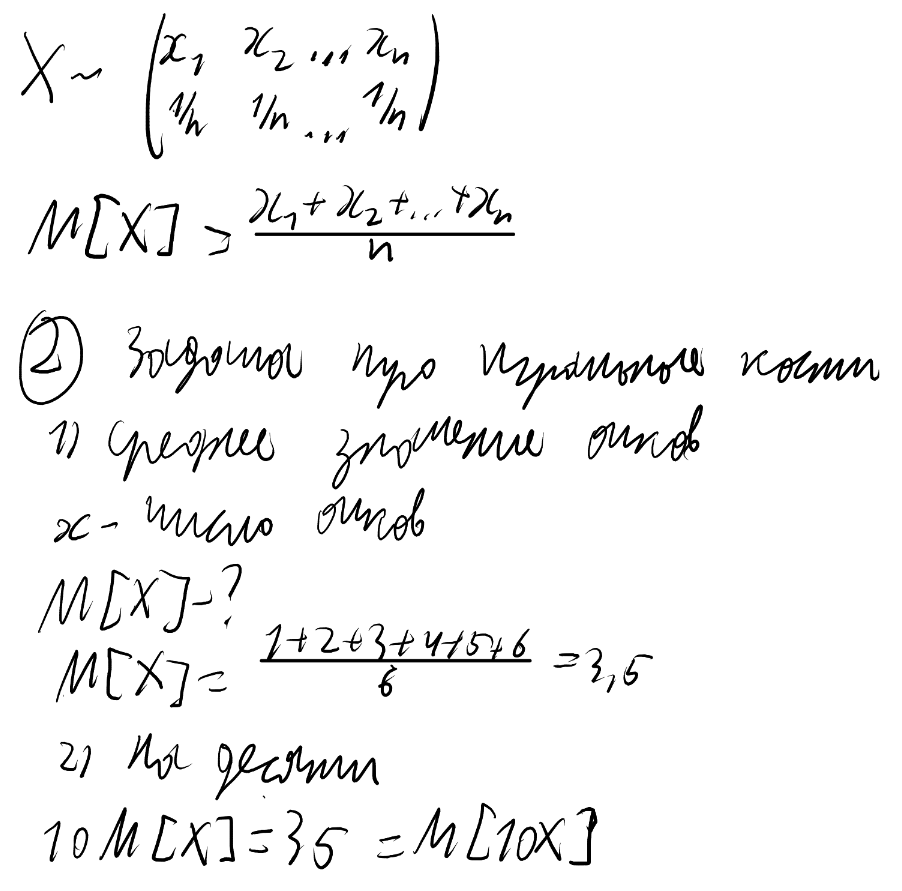 X ~ (x₁ x₂ ... xₙ
1/n 1/n ... 1/n)
M[X] = (x₁ + x₂ + ... + xₙ)/n
② Задача про игральные кости
1) Среднее значение очков
x - число очков
M[X] - ?
M[X] = (1+2+3+4+5+6)/6 = 3,5
2) На десяти
10M[X] = 35 = M[10X]